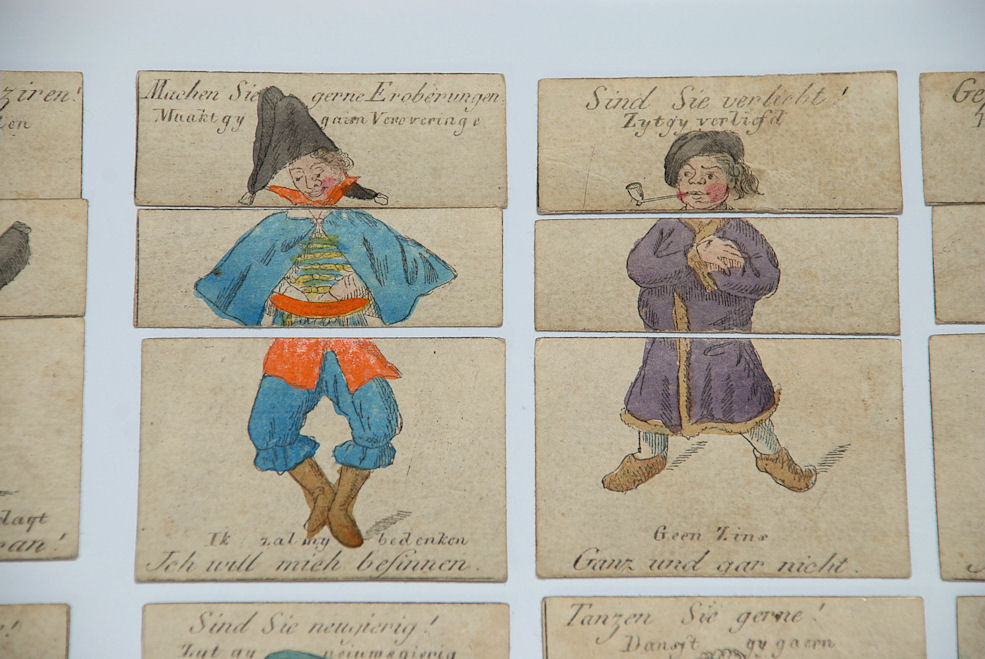 ziren!
Machen Sie gerne Eroberungen.
Maakt gy gaern Veroveringe
Sind Sie verliebt!
Zyt gy verliefd
Ik zal my bedenken
Ich will mich besinnen.
Geen Zins
Ganz und gar nicht.
Sind Sie neugierig!
Zyt gy
Tanzen Sie gerne!
Danst gy gaern